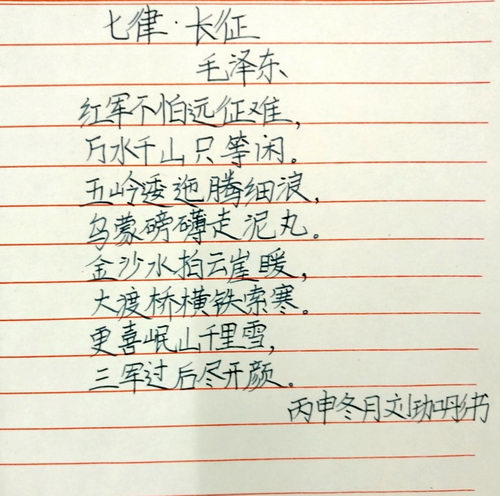 七律·长征
毛泽东
红军不怕远征难,
万水千山只等闲。
五岭逶迤腾细浪,
乌蒙磅礴走泥丸。
金沙水拍云崖暖,
大渡桥横铁索寒。
更喜岷山千里雪,
三军过后尽开颜。
丙申冬月刘珈彤书